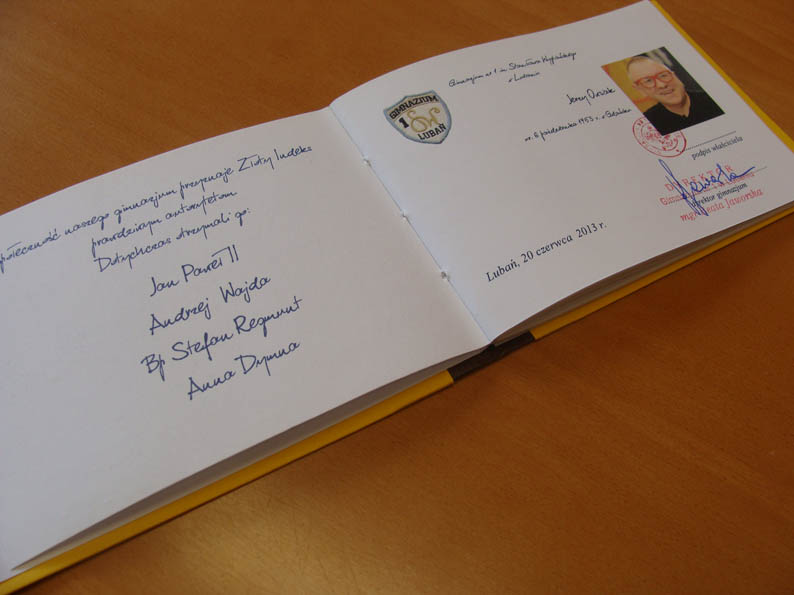 społeczność naszego gimnazjum przyznaje Złoty Indeks
prawdziwym autorytetom
Dotychczas otrzymali go:
Jan Paweł II
Andrzej Wajda
Bp Stefan Regmunt
Anna Dymna
GIMNAZJUM
1
LUBAŃ
Gimnazjum nr 1 im. Stanisława Wyspiańskiego
w Lubaniu
Jerzy Owsiak
ur. 6 października 1953 r. w Gdańsku
podpis właściciela
DYREKTOR
Gimnazjum
dyrektor gimnazjum
mgr Beata Jaworska
Lubań, 20 czerwca 2013 r.